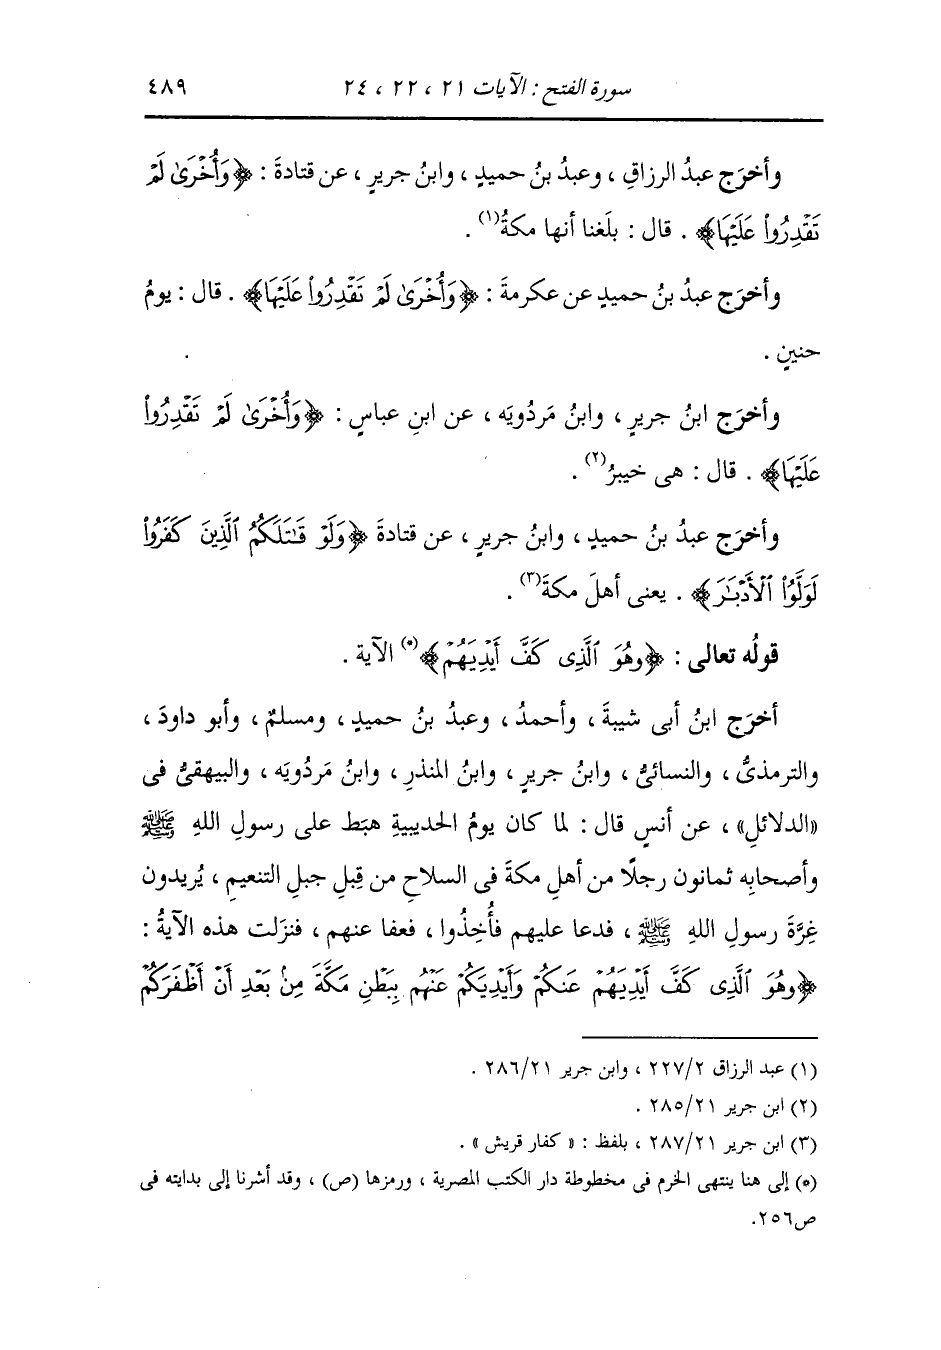 سورة الفتح : الآيات ٢١ ، ٢٢ ، ٢٤ ٤٨٩
وأخرَج عبدُ الرزاقِ ، وعبدُ بنُ حميدٍ ، وابنُ جريرٍ ، عن قتادةَ : ﴿وَأُخْرَىٰ لَمْ
تَقْدِرُوا۟ عَلَيْهَا﴾ . قال : بلَغنا أنها مكةُ(١) .
وأخرَج عبدُ بنُ حميدٍ عن عكرمةَ : ﴿وَأُخْرَىٰ لَمْ تَقْدِرُوا۟ عَلَيْهَا﴾ . قال : يومُ
حنينٍ .
وأخرَج ابنُ جريرٍ ، وابنُ مَردُويَه ، عن ابنِ عباسٍ : ﴿وَأُخْرَىٰ لَمْ تَقْدِرُوا۟
عَلَيْهَا﴾ . قال : هى خيبرُ(٢) .
وأخرَج عبدُ بنُ حميدٍ ، وابنُ جريرٍ ، عن قتادةَ ﴿وَلَوْ قَـٰتَلَكُمُ ٱلَّذِينَ كَفَرُوا۟
لَوَلَّوُا۟ ٱلْأَدْبَـٰرَ﴾ . يعنى أهلَ مكةَ(٣) .
قولُه تعالى : ﴿وَهُوَ ٱلَّذِى كَفَّ أَيْدِيَهُمْ﴾(*) الآية .
أخرَج ابنُ أبى شيبةَ ، وأحمدُ ، وعبدُ بنُ حميدٍ ، ومسلمٌ ، وأبو داودَ ،
والترمذىُّ ، والنسائىُّ ، وابنُ جريرٍ ، وابنُ المنذرِ ، وابنُ مَردُويَه ، والبيهقىُّ فى
«الدلائلِ» ، عن أنسٍ قال : لما كان يومُ الحديبيةِ هبَط على رسولِ اللهِ ﷺ
وأصحابِه ثمانون رجلًا من أهلِ مكةَ فى السلاحِ من قِبلِ جبلِ التنعيمِ ، يُريدون
غِرَّةَ رسولِ اللهِ ﷺ ، فدعا عليهم فأُخِذُوا ، فعفا عنهم ، فنزَلت هذه الآيةُ :
﴿وَهُوَ ٱلَّذِى كَفَّ أَيْدِيَهُمْ عَنكُمْ وَأَيْدِيَكُمْ عَنْهُم بِبَطْنِ مَكَّةَ مِنۢ بَعْدِ أَنْ أَظْفَرَكُمْ
(١) عبد الرزاق ٢٢٧/٢ ، وابن جرير ٢٨٦/٢١ .
(٢) ابن جرير ٢٨٥/٢١ .
(٣) ابن جرير ٢٨٧/٢١ ، بلفظ : « كفار قريش » .
(*) إلى هنا ينتهى الخرم فى مخطوطة دار الكتب المصرية ، ورمزها (ص) ، وقد أشرنا إلى بدايته فى
ص٢٥٦.